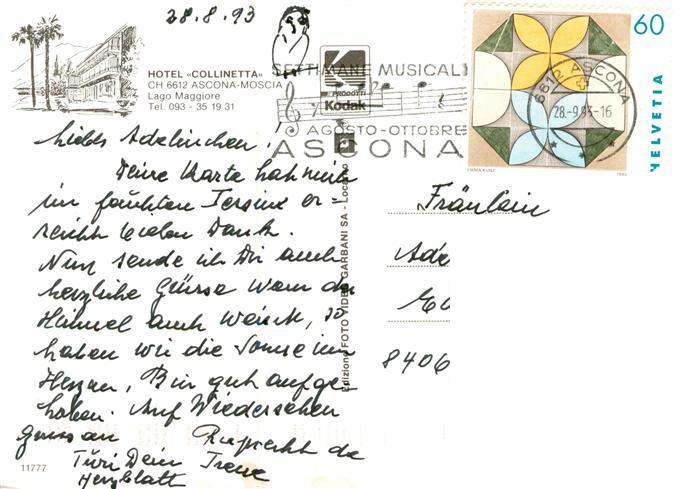 28.8.93
HOTEL «COLLINETTA»
CH 6612 ASCONA-MOSCIA
Lago Maggiore
Tel. 093 - 35 19 31
liebes Adelinchen,
Deine Karte hat mich
im feuchten Tessin er=
reicht lieben Dank.
Nun sende ich Dir auch
herzliche Grüsse wenn der
Himmel auch weint, so
haben wir die Sonne im
Herzen, Bin gut aufge-
hoben. Auf Wiedersehen
Gruss an Ruprecht
Türi Dein Irene
Herzblatt
11777
Edizione FOTO VIDEO GARBANI SA - Locarno
PRODOTTI
Kodak
SETTIMANE MUSICALI
AGOSTO-OTTOBRE
ASCONA
6612 ASCONA
28.-9.93-16
60
HELVETIA
EMMA KUNZ
1993
Fräulein
Ade
8406